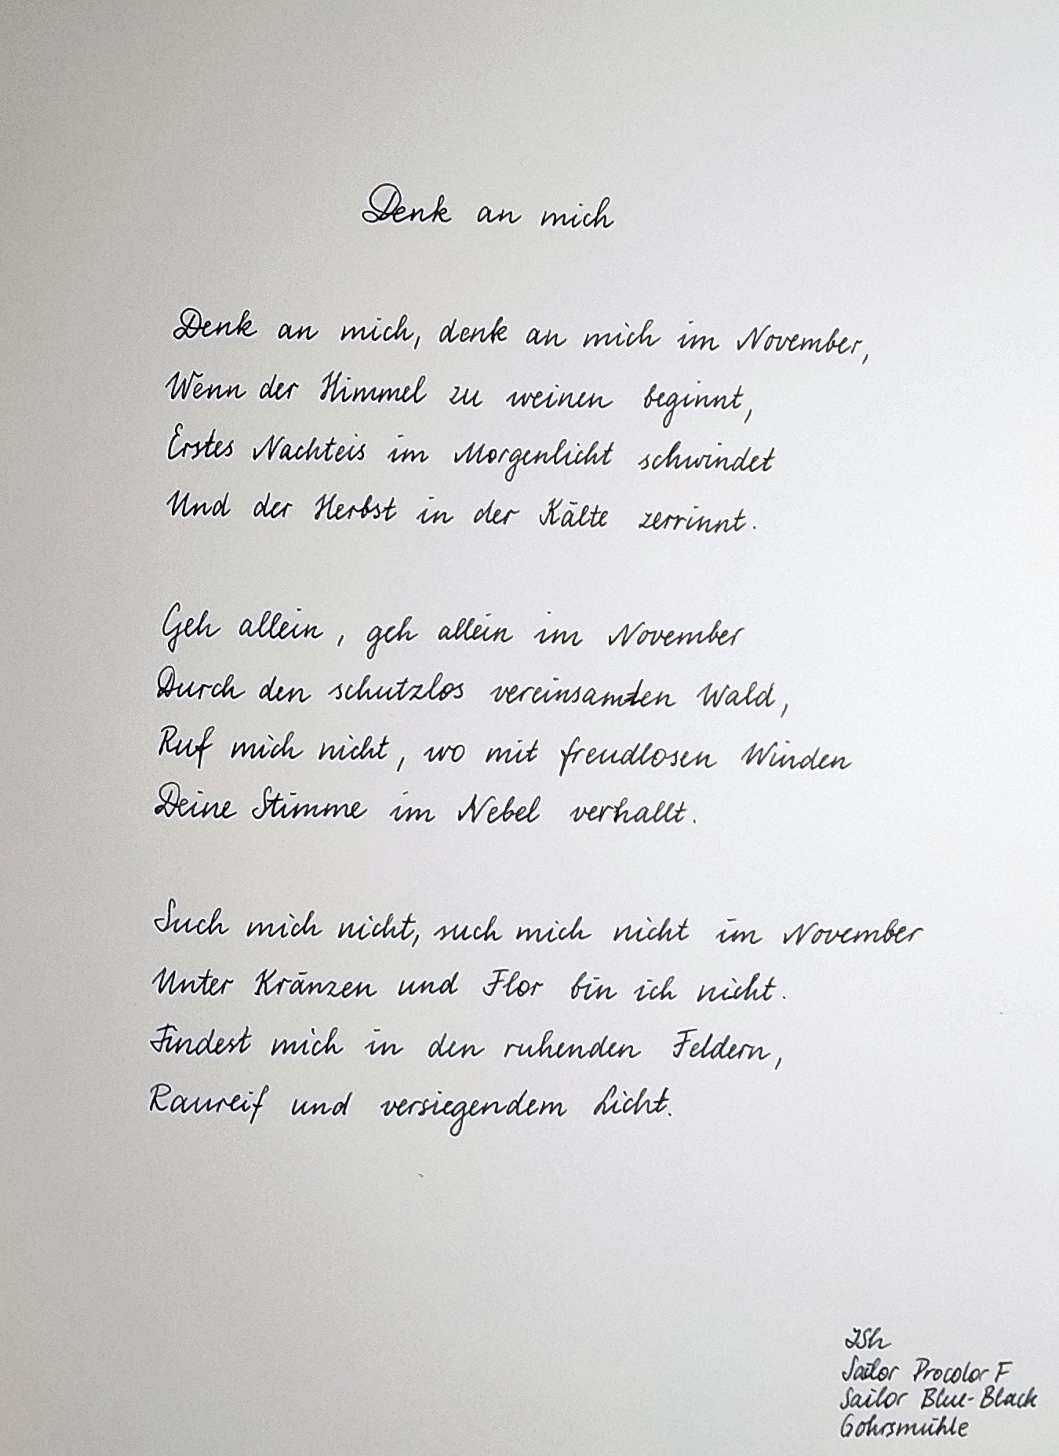 Denk an mich
Denk an mich, denk an mich im November,
Wenn der Himmel zu weinen beginnt,
Erstes Nachteis im Morgenlicht schwindet
Und der Herbst in der Kälte zerrinnt.
Geh allein, geh allein im November
Durch den schutzlos vereinsamten Wald,
Ruf mich nicht, wo mit freudlosen Winden
Deine Stimme im Nebel verhallt.
Such mich nicht, such mich nicht im November
Unter Kränzen und Flor bin ich nicht.
Findest mich in den ruhenden Feldern,
Raureif und versiegendem Licht.
JSh
Sailor Procolor F
Sailor Blue-Black
Gohrsmühle